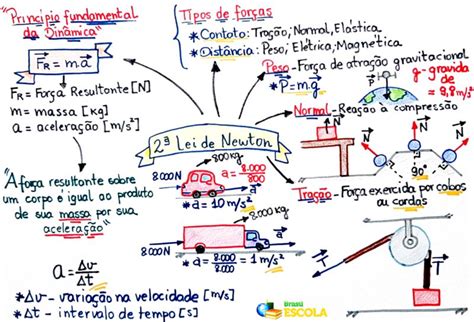 "Princípio fundamental
da Dinâmica"
F_R = m.a
F_R = Força Resultante [N]
m = massa [kg]
a = aceleração [m/s²]
"A força resultante sobre
um corpo é igual ao produto
de sua massa por sua
aceleração"
a = Δv/Δt
*Δv - variação na velocidade [m/s]
*Δt - intervalo de tempo [s]
Tipos de forças
*Contato: Tração; Normal, Elástica
*Distância: Peso; Elétrica; Magnética
Peso - Força de atração gravitacional
*P = m.g
P
g - gravidade
= 9,8 m/s²
Normal - Reação à compressão
N
N
N
N
90°
2ª Lei de Newton
800kg
8000N
*a = 8.000/800
*a = 10 m/s²
8.000 kg
8000N
*a = 8.000/8.000 = 1 m/s²
Tração - Força exercida por cabos
ou cordas
T
T
Brasil
ESCOLA